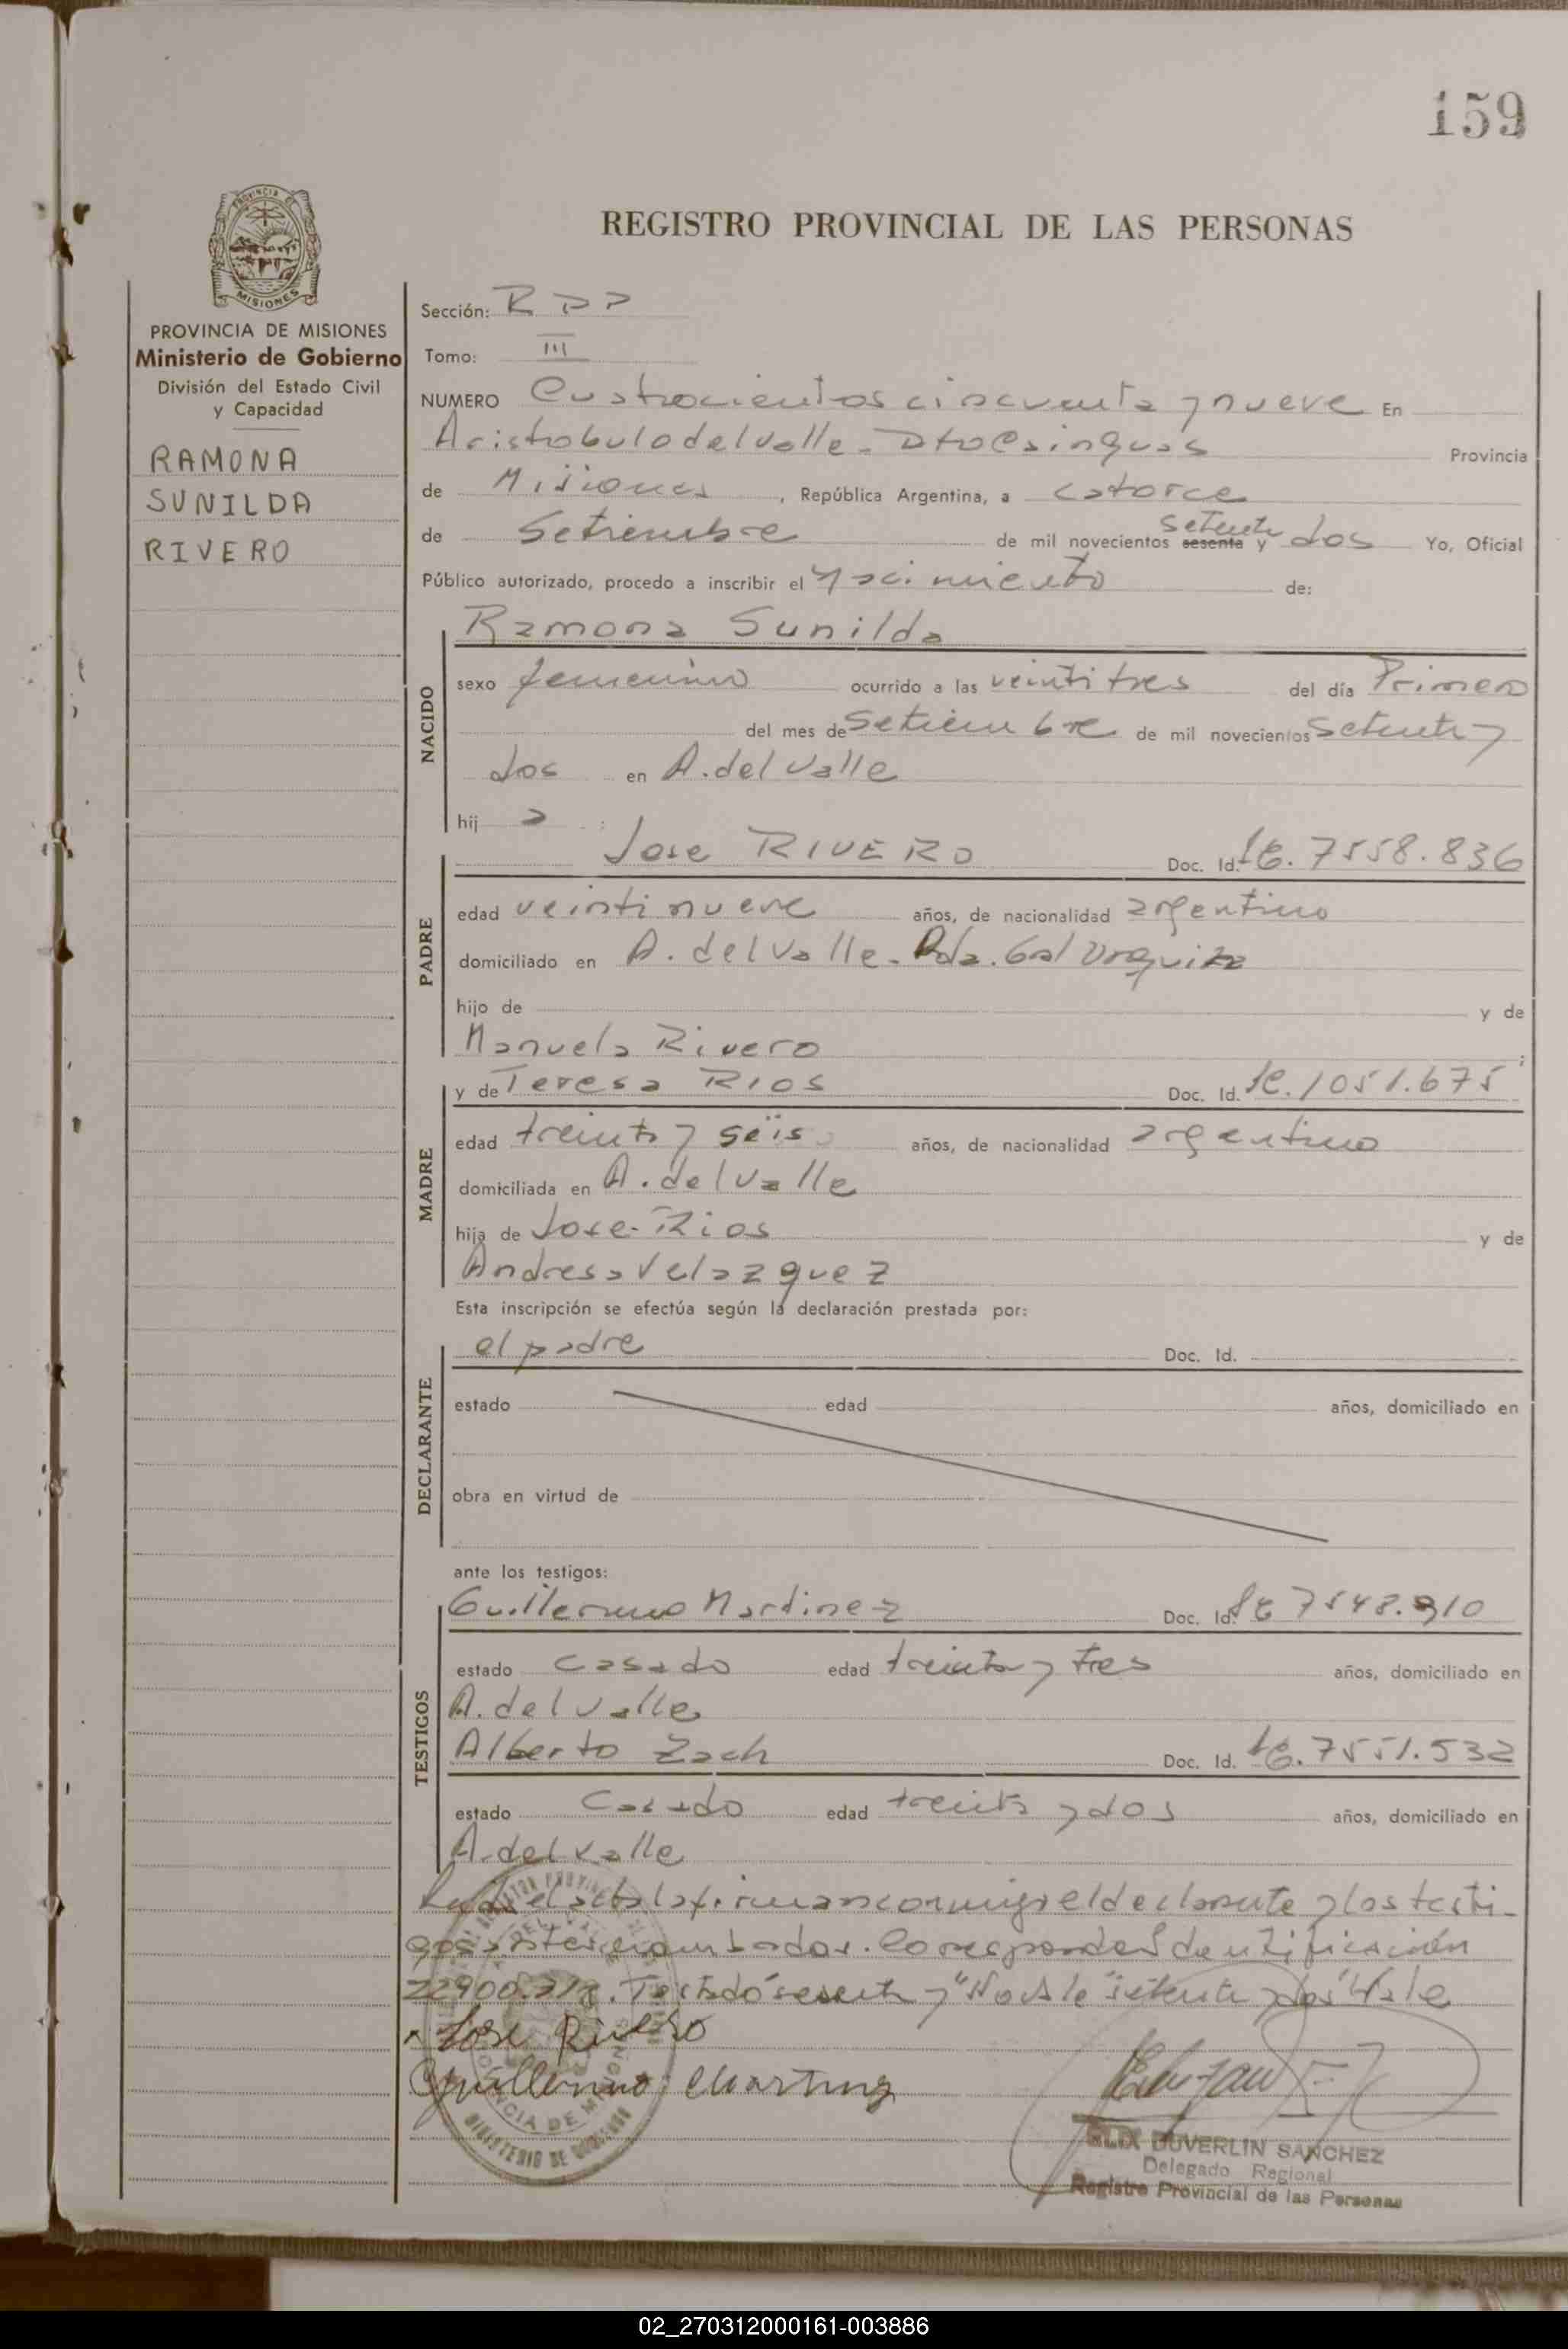 159
REGISTRO PROVINCIAL DE LAS PERSONAS
PROVINCIA DE MISIONES
Ministerio de Gobierno
División del Estado Civil
y Capacidad
RAMONA
SUNILDA
RIVERO
Sección: RDP
Tomo: III
NUMERO Cuatrocientos cincuenta y nueve En
Aristobulo del Valle - Dto Cainguas Provincia
de Misiones, República Argentina, a catorce
de Setiembre de mil novecientos sesenta setenta y dos Yo, Oficial
Público autorizado, procedo a inscribir el nacimiento de:
NACIDO
Ramona Sunilda
sexo femenino ocurrido a las veintitres del día Primero
del mes de Setiembre de mil novecientos setenta y
dos en A. del Valle
hij a :
PADRE
Jose RIVERO Doc. Id. 7558.836
edad veintinueve años, de nacionalidad argentino
domiciliado en A. del Valle - Pda. Gral Urquiza
hijo de y de
Manuela Rivero ;
MADRE
y de Teresa RIOS Doc. Id. 1051.675
edad treinta y seis años, de nacionalidad argentina
domiciliada en A. del Valle
hija de Jose Rios y de
Andresa Velazquez
Esta inscripción se efectúa según la declaración prestada por:
DECLARANTE
el padre Doc. Id.
estado edad años, domiciliado en
obra en virtud de
ante los testigos:
TESTIGOS
Guillermo Martinez Doc. Id. 7548.910
estado casado edad treinta y tres años, domiciliado en
A. del Valle
Alberto Zach Doc. Id. 7551.532
estado Casado edad treinta y dos años, domiciliado en
A. del Valle
el acta la firman conmigo el declarante y los testi-
gos antes nombrados. Corresponde Identificación
Testado "sesenta y" No vale "setenta y dos" Vale
Jose Rivero
Guillermo Martinez
DUVERLIN SANCHEZ
Delegado Regional
Registro Provincial de las Personas
02_270312000161-003886